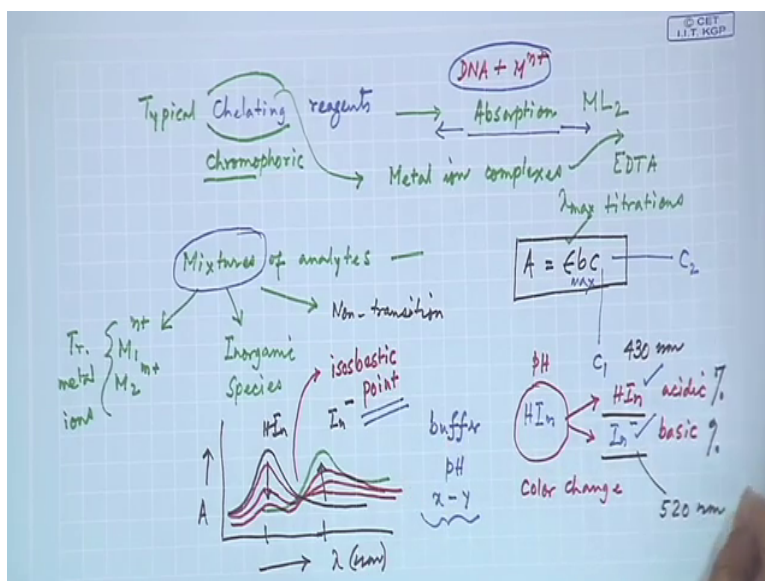 © CET
I.I.T. KGP
DNA + Mⁿ⁺
Typical Chelating reagents → Absorption ML₂
Chromophoric
Metal ion complexes
EDTA
λmax titrations
Mixtures of analytes —
A = Ɛbc
MAX
C₂
C₁
Non-transition
Tr.
metal
ions
M₁ⁿ⁺
M₂ᵐ⁺
Inorganic
Species
isosbestic
point
HIn
In⁻
A
λ (nm)
buffer
pH
x-y
pH
430 nm
HIn
HIn acidic %
In⁻ basic %
Color change
520 nm